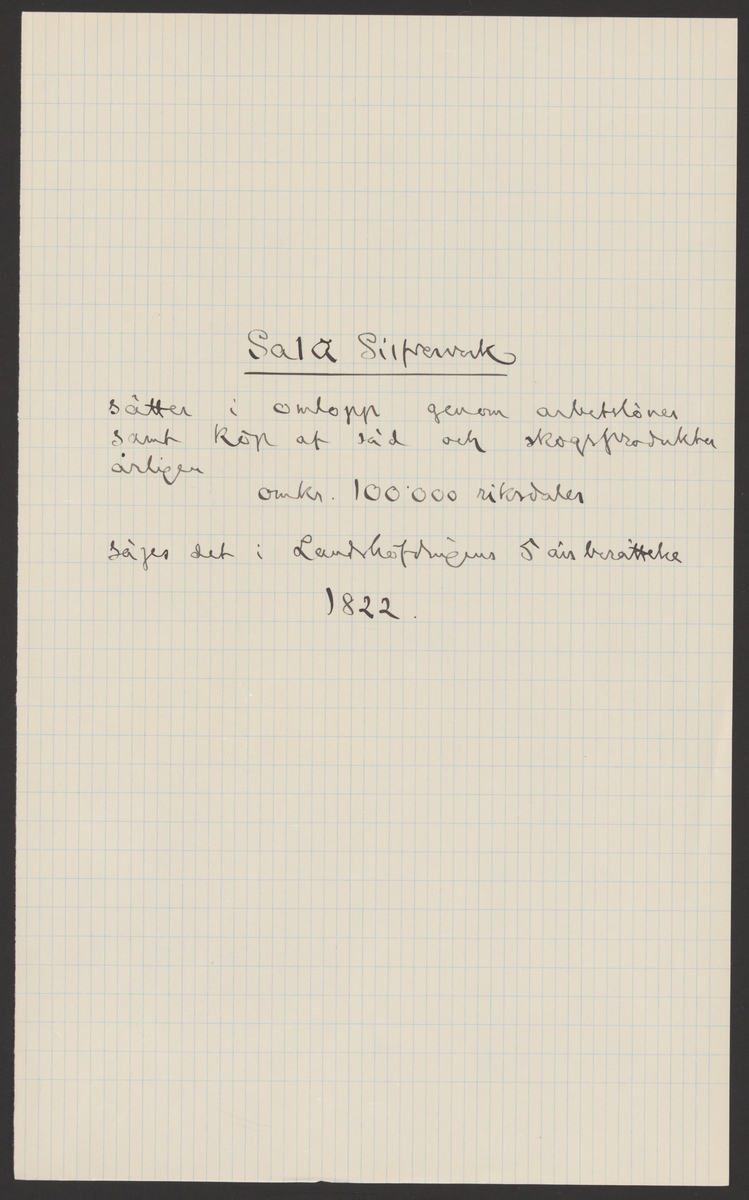 Sala Silfververk
sätter i omlopp genom arbetslöner
samt köp af säd och skogsprodukter
årligen
omkr. 100'000 riksdaler
säges det i Landshöfdingens 5 års berättelse
1822.